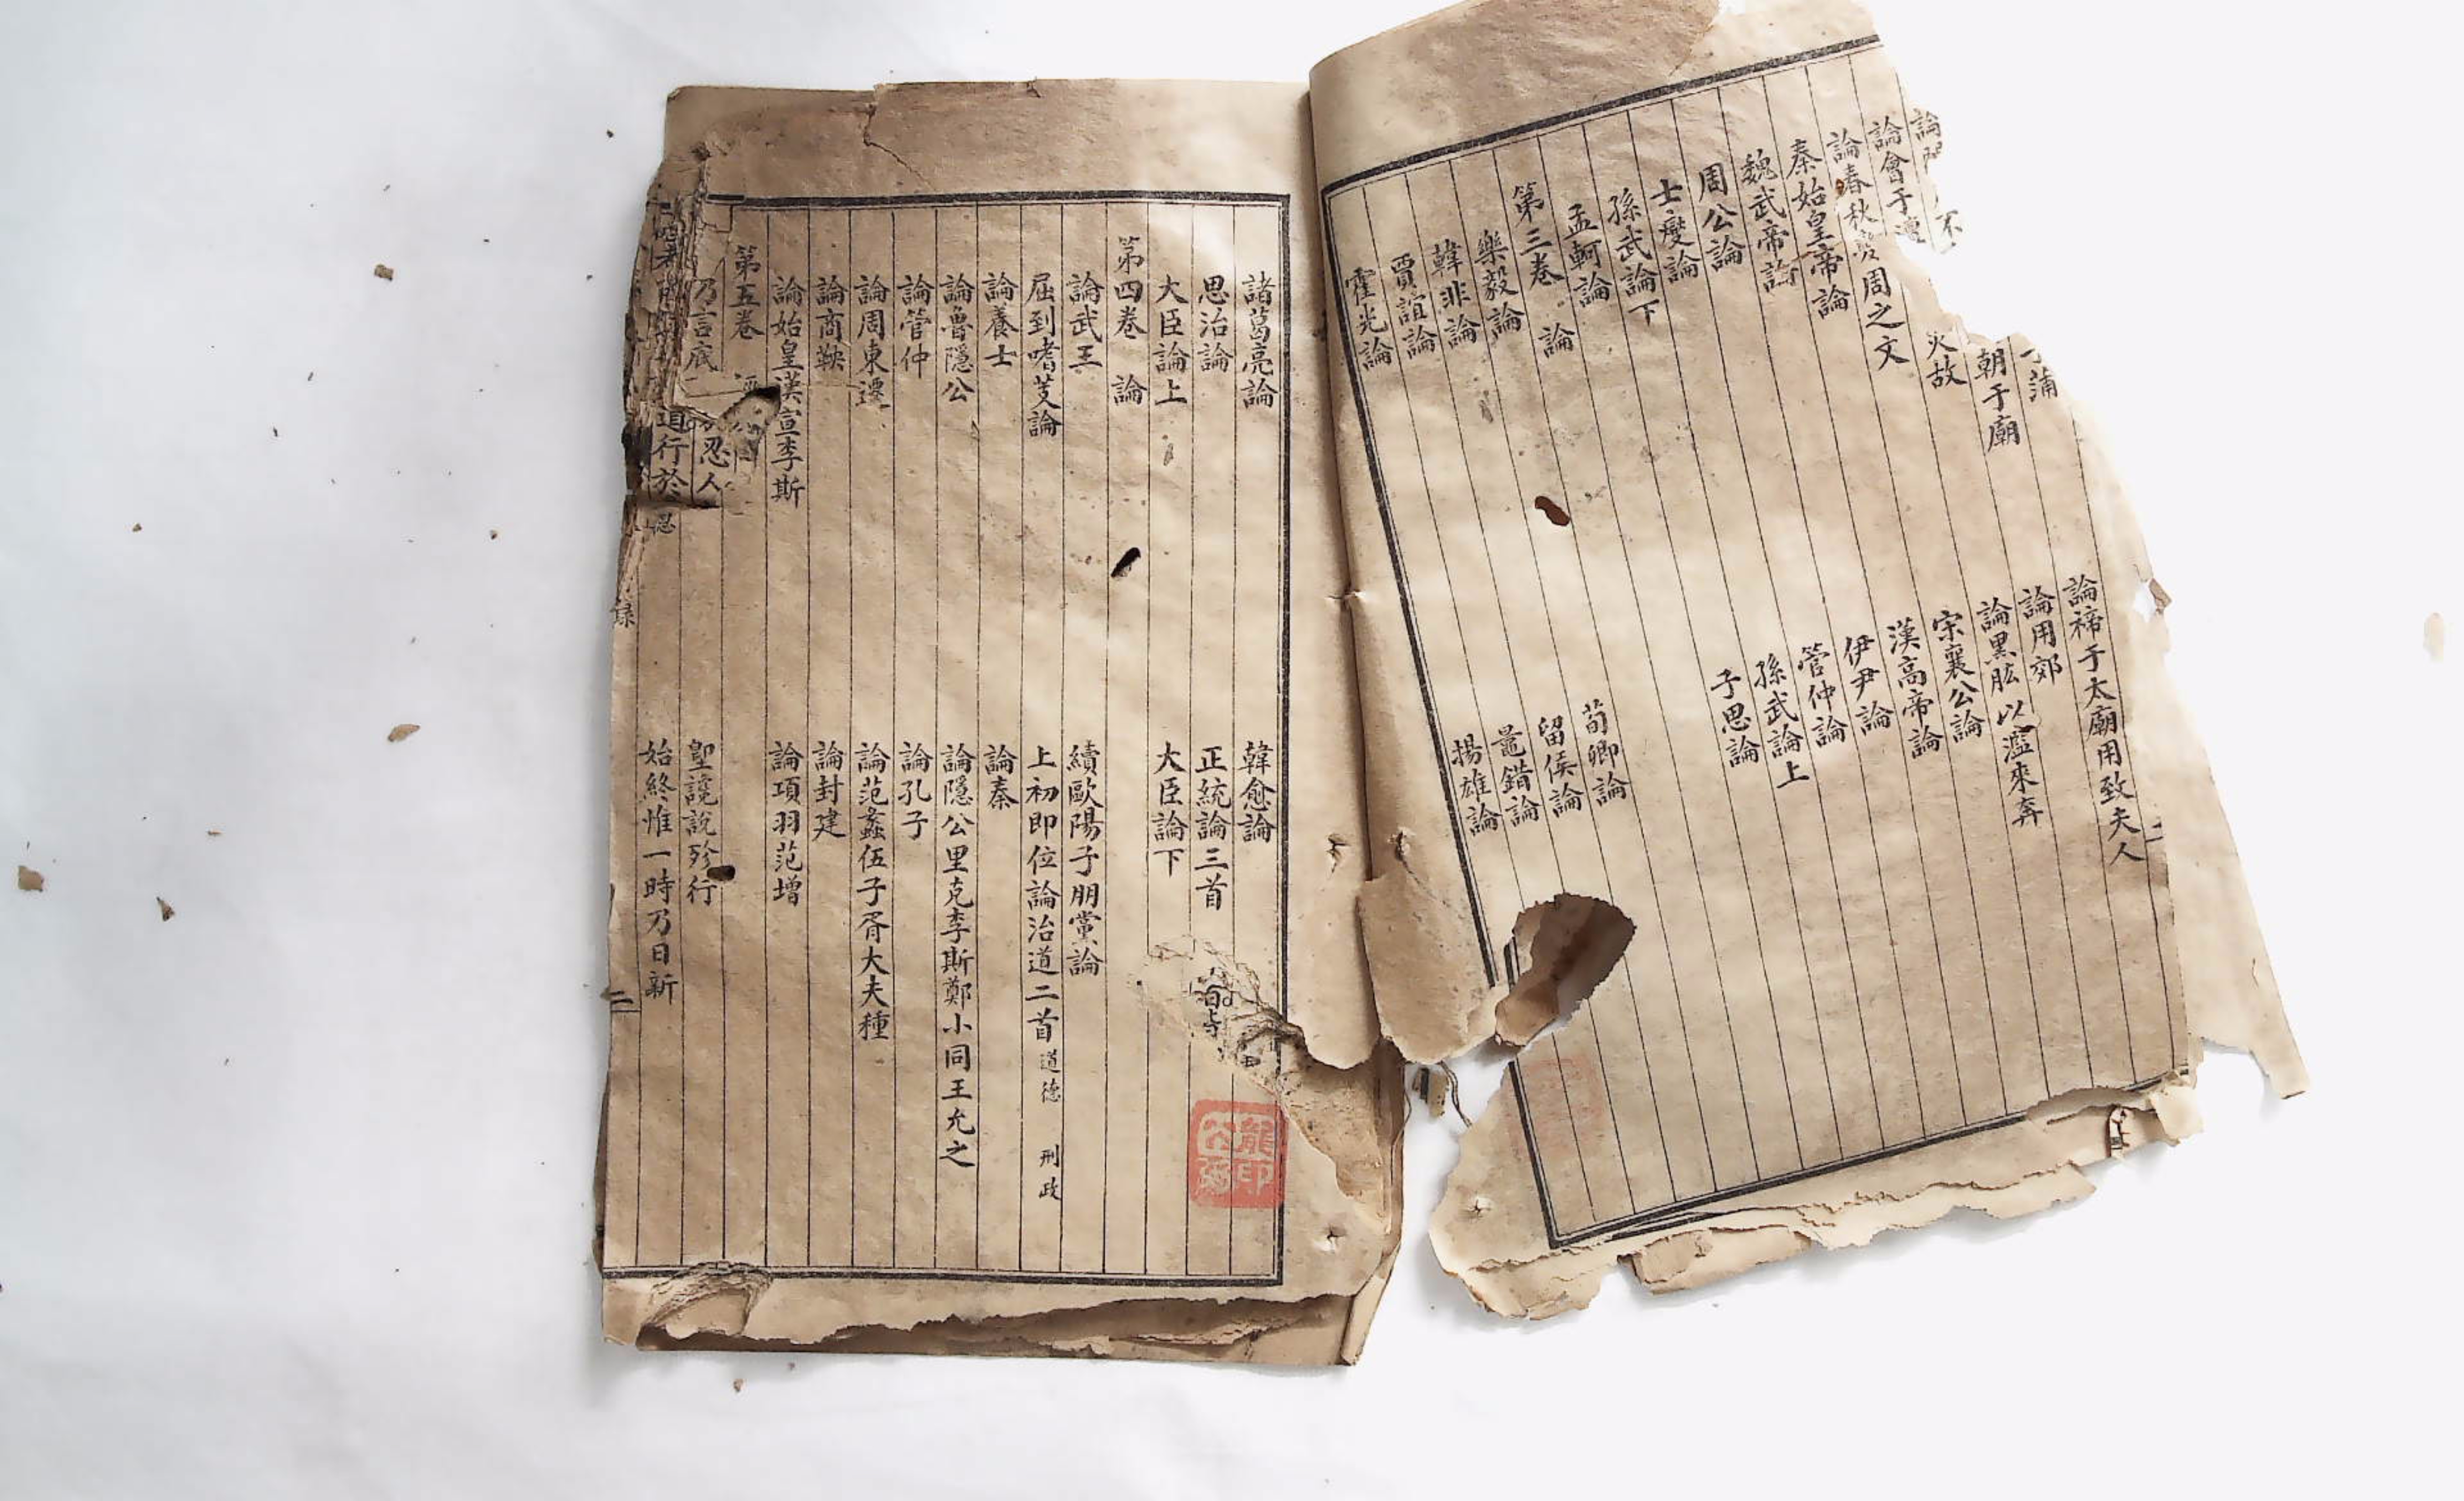 論禘于太廟用致夫人
論用郊
朝于廟
論黑肱以濫來奔
災故
宋襄公論
論春秋變周之文
漢高帝論
秦始皇帝論
伊尹論
魏武帝論
管仲論
周公論
孫武論上
士燮論
子思論
孫武論下
孟軻論
第三卷 論
荀卿論
樂毅論
留侯論
韓非論
鼂錯論
賈誼論
揚雄論
霍光論
諸葛亮論
韓愈論
思治論
正統論三首
大臣論上
大臣論下
第四卷 論
論武王
續歐陽子朋黨論
屈到嗜芰論
上初即位論治道二首 道德 刑政
論養士
論秦
論魯隱公
論隱公里克李斯鄭小同王允之
論管仲
論孔子
論周東遷
論范蠡伍子胥大夫種
論商鞅
論封建
論始皇漢宣李斯
論項羽范增
第五卷
乃言底
忍人
聖讒說殄行
道行於
始終惟一時乃日新
錄
二